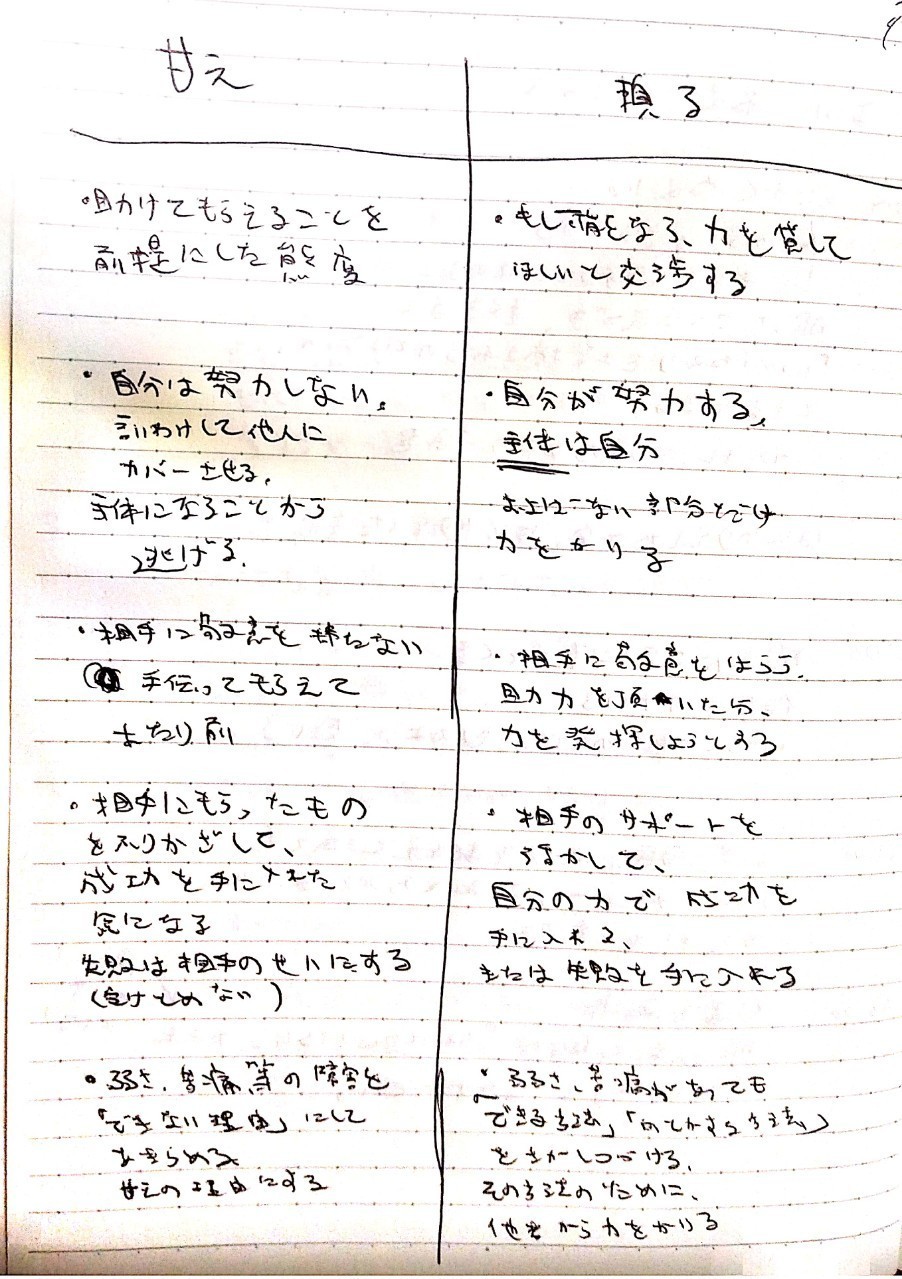 甘え
・助けてもらえることを
前提にした態度
・自分は努力しない。
言いわけして他人に
カバーさせる。
主体になることから
逃げる。
・相手に敬意を持たない
手伝ってもらえて
あたり前
・相手にもらったもの
をふりかざして、
成功を手に入れた
気になる
失敗は相手のせいにする
(受けとめない)
・弱さ、苦痛等の障害を
「できない理由」にして
あきらめる
甘えの理由にする
頼る
・もし可能なら、力を貸して
ほしいと交渉する
・自分が努力する。
主体は自分
およばない部分だけ
力をかりる
・相手に敬意をはらう。
助力を頂いた分、
力を発揮しようとする
・相手のサポートを
うまかして、
自分の力で成功を
手に入れる、
または失敗を手に入れる
・弱さ、苦痛があっても
できる方法」「何とかする方法」
をさがしつづける。
その方法のために、
他者から力をかりる